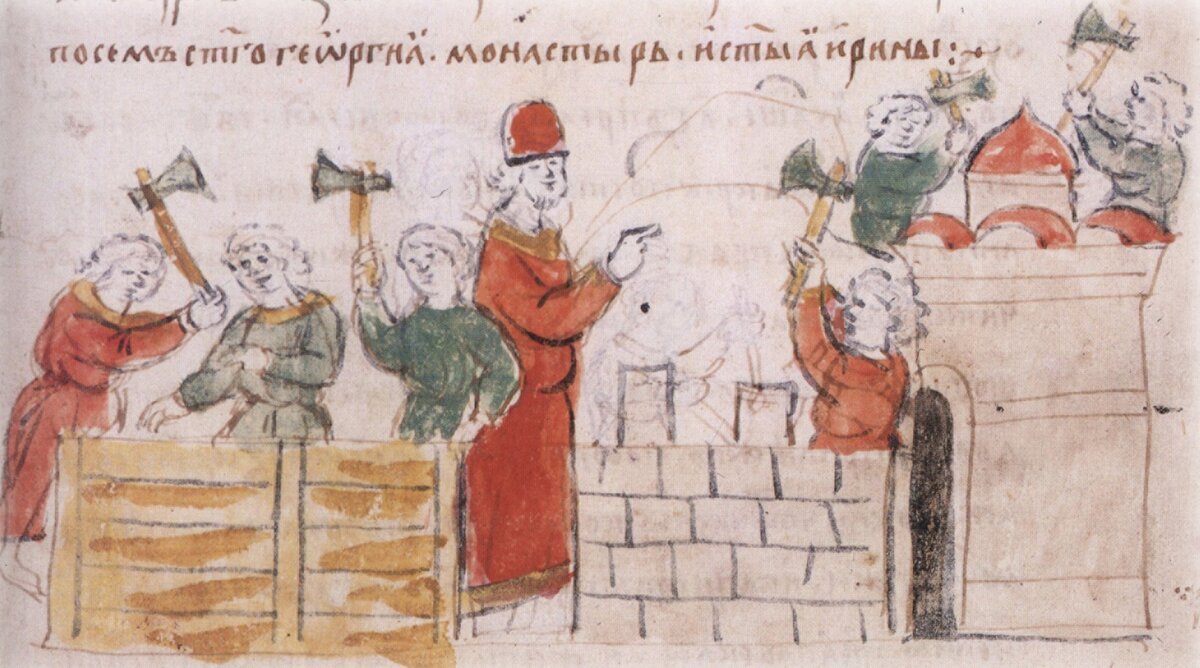 посемъ ст҃го геѡргиѧ · монастырь · и҆ ст҃ыѧ и҆рины :~